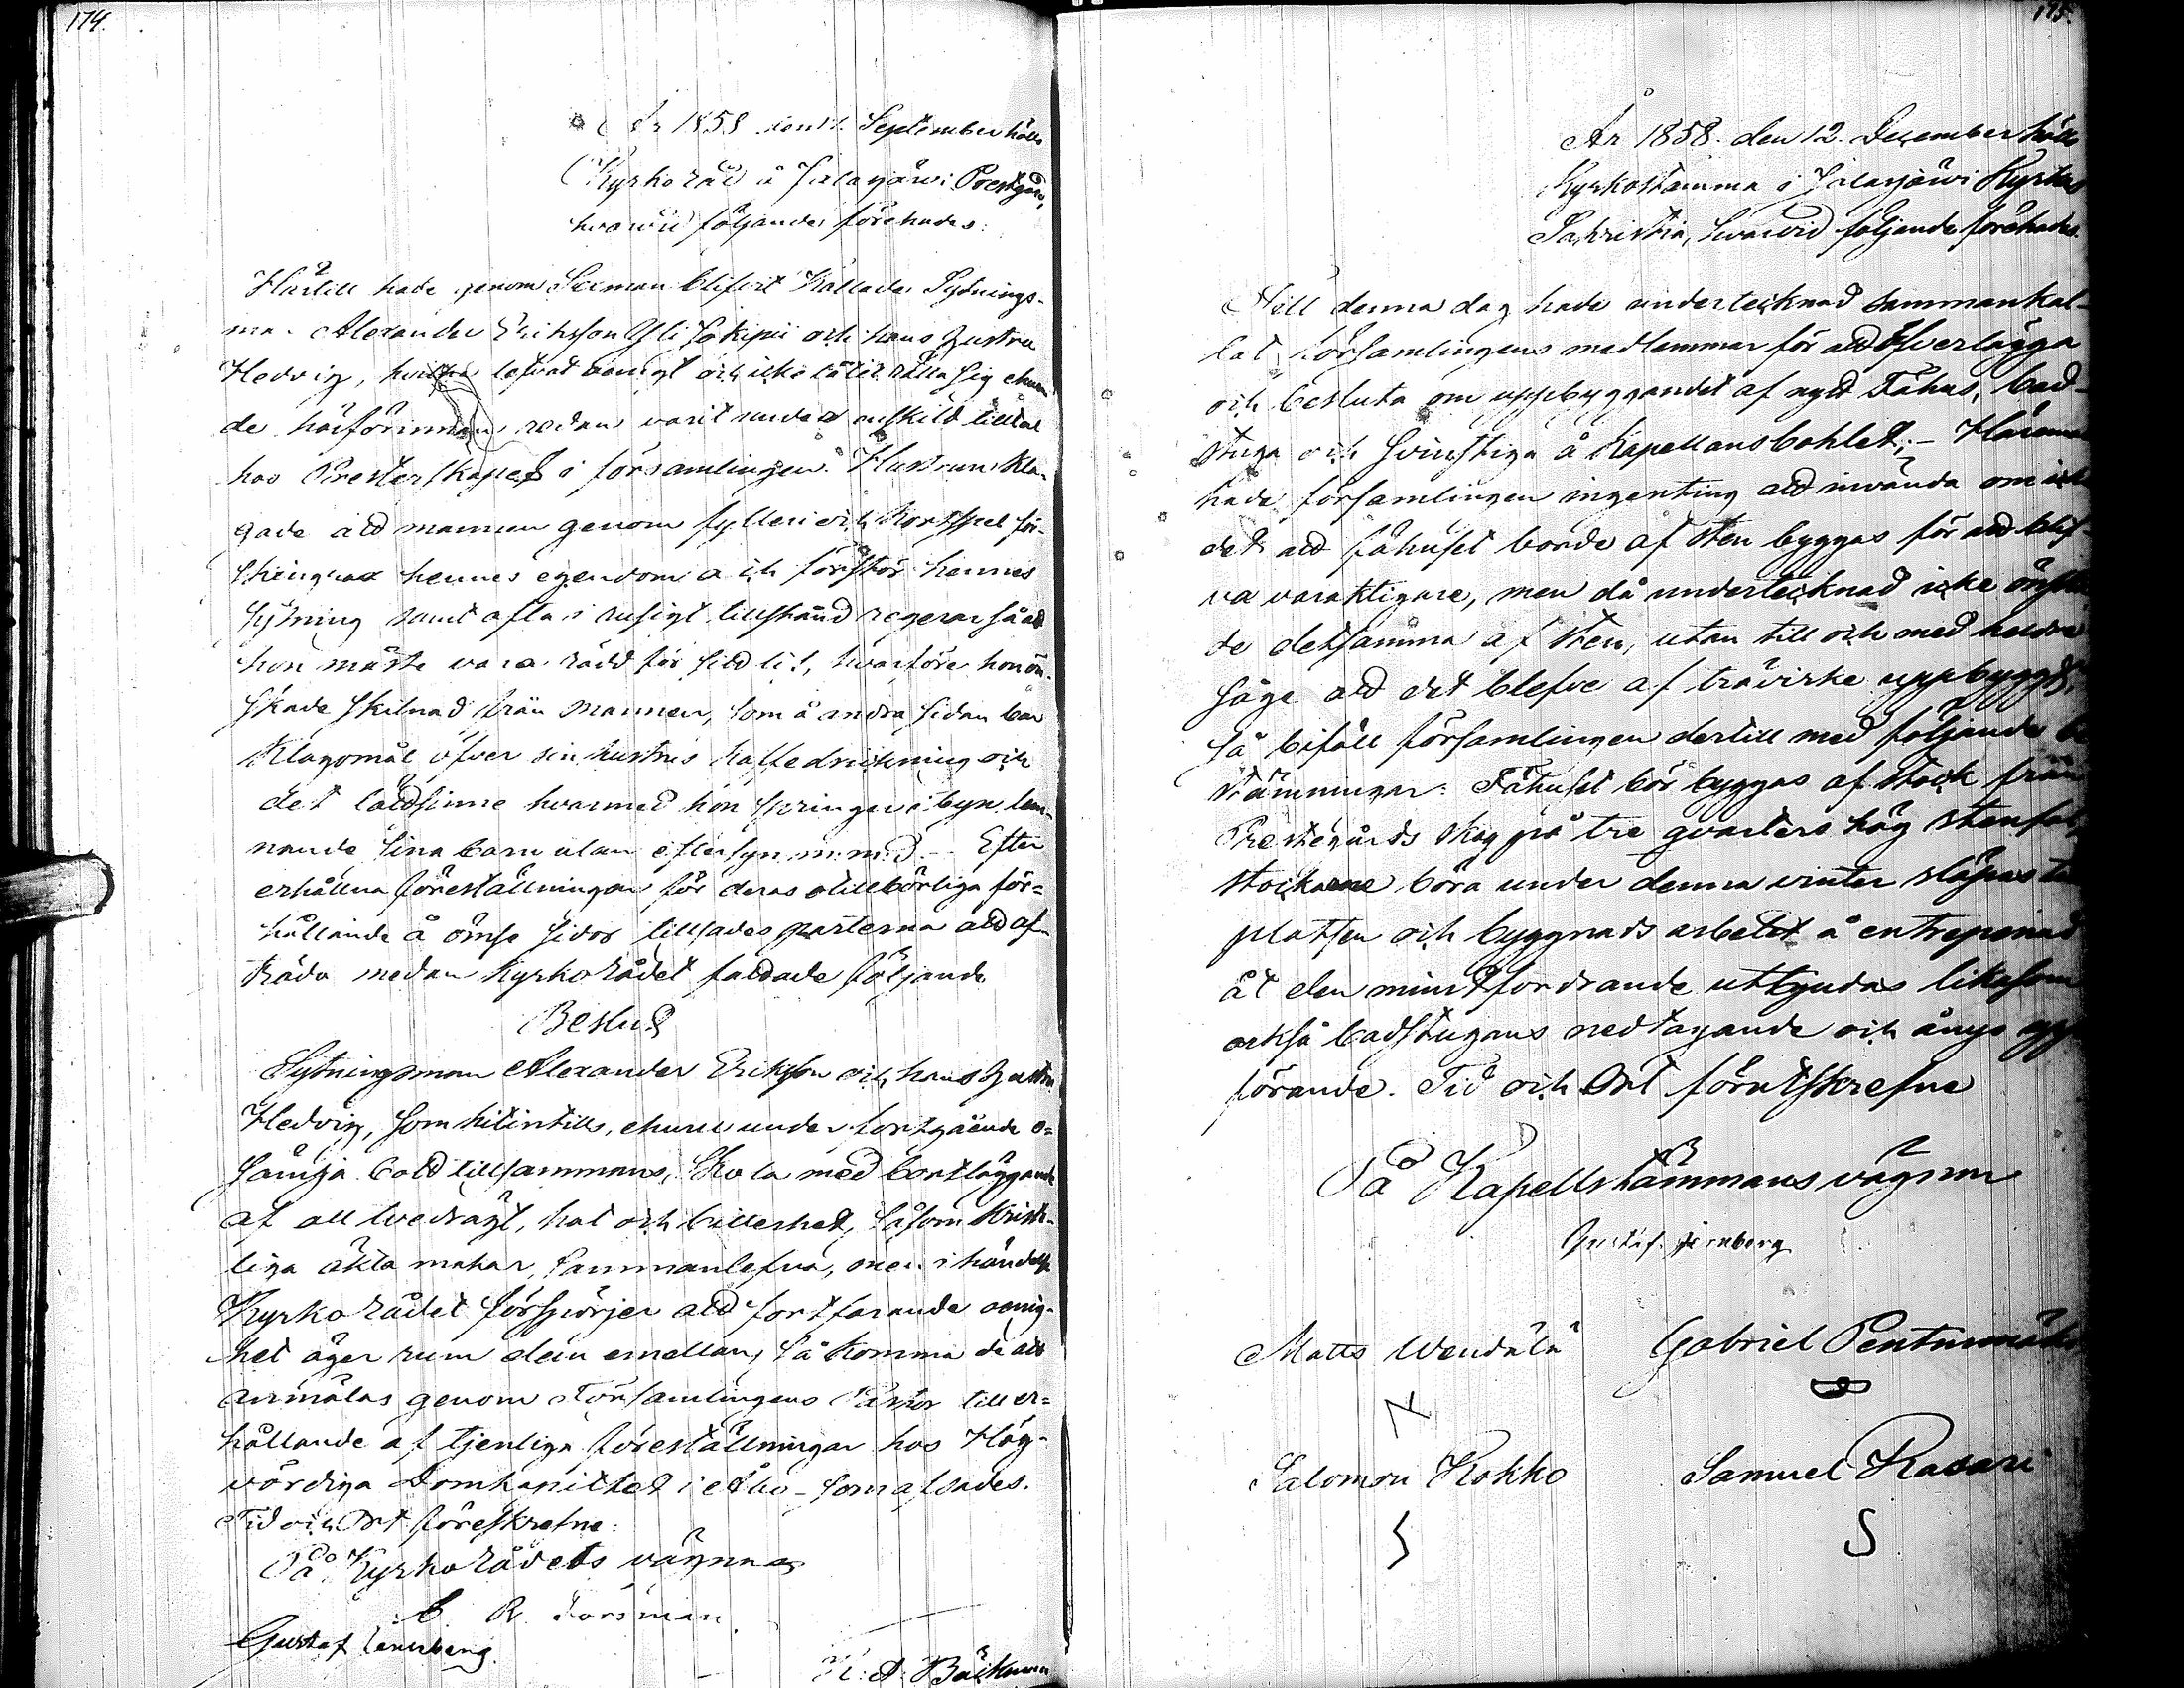 174.
År 1858 den September hölls
Kyrkoråd å Jalasjärvi Prestgård,
hvarvid följande förehades:
Härtill hade genom Sexman blifvit kallade Sytnings-
man Alexander Eriksson Yli Jokipii och hans hustru
Hedvig, hvilka lefvat oenigt och icke låtit rätta sig ehuru
de härförinnan redan varit under enskild tilltal
hos Presterskapet i församlingen. Hustrun kla-
gade att mannen genom fylleri och kortspel för-
skingrar hennes egendom och förstör hennes
sytning samt ofta i rusigt tillstånd regerar så att
hon måste vara rädd för sitt lif, hvarföre hon ön-
skade skilnad från mannen, som å andra sidan bar
klagomål öfver sin hustrus kaffedrickning och
det lättsinne hvarmed hon springer i byn lem-
nande sina barn utan eftersyn m.m.d. – Efter
erhållna föreställningar för deras otillbörliga för-
hållande å ömse sidor tillsades parterna att af-
träda medan Kyrkorådet fattade följande
Beslut
Sytningsman Alexander Eriksson och hans hustru
Hedvig, som hitintills, ehuru under fortgående o-
sämja bott tillsammans, skola med bortläggande
af all tvedrägt, hat och bitterhet, såsom krist-
liga äkta makar, sammanlefva, men i händelse
Kyrkorådet försporjer att fortfarande oenig-
het äger rum dem emellan, så komma de att
anmälas genom Församlingens Pastor till er-
hållande af tjenliga föreställningar hos Hög-
vördiga Domkapitlet i Åbo – som afsades.
Tid och Ort föreskrefne:
På Kyrkorådets vägnar
C R Forsman
Gustaf
Bäckman
175.
År 1858. den 12. December hölls
Kyrkostämma i Jalasjärvi Kyrkas
Sakristia, hvarvid följande förehades.
Till denna dag hade undertecknad sammankal-
lat församlingens medlemmar för att öfverlägga
och besluta om uppbyggandet af nytt Fähus, bad-
stuga och svinstiga å Kapellansbohlet; – Häremot
hade församlingen ingenting att invända om icke
det att fähuset borde af sten byggas för att blif-
va varaktigare, men då undertecknad icke önska-
de detsamma af sten, utan till och med heldre
såge att det blefve af trävirke uppbyggdt,
så biföll församlingen dertill med följande be-
stämningar: Fähuset bör byggas af stock från
Prestegårds skog på tre qvarters hög stenfot,
stockarne böra under denna vinter släpas till
platsen och byggnads arbetet å entreprenad
åt den minstfordrande utbjudas likasom
också badstugans nedtagande och ånyo upp-
förande. Tid och Ort förutskrefne
På Kapellstämmans vägnar
Gustaf
Matts Wendälä Gabriel Pentinmäki
Salomon Kokko Samuel Rasari